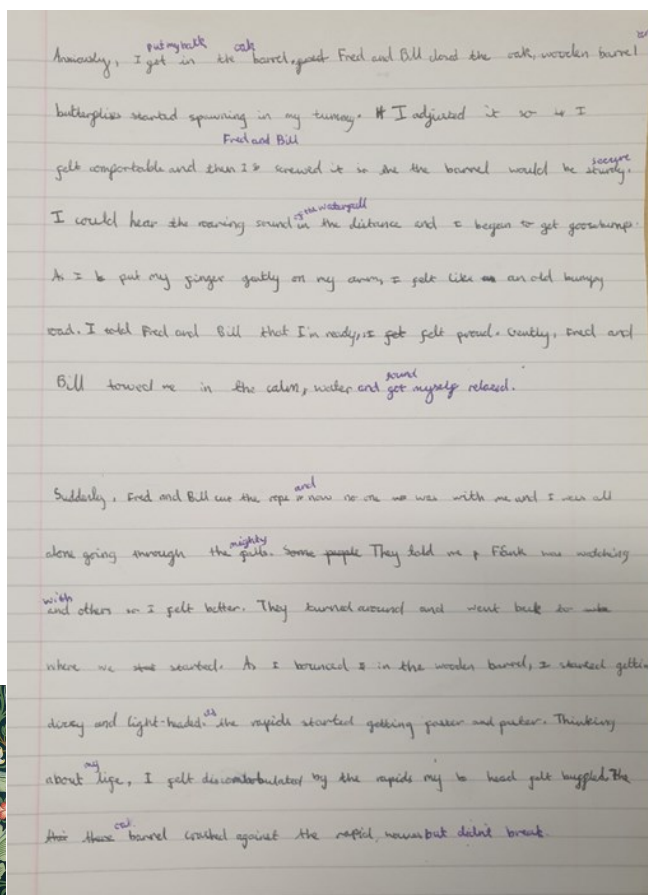 put my back oak
Anxiously, I get in the barrel, Fred and Bill closed the oak, wooden barrel
butterflies started spawning in my tummy. I adjusted it so I
Fred and Bill
felt comfortable and then screwed it so the the barrel would be sturdy. secure
of the waterfall
I could hear the roaring sound in the distance and I began to get goosebumps.
As I put my finger gently on my arm, I felt like an old bumpy
road. I told Fred and Bill that I'm ready, I felt proud. Gently, Fred and
Bill towed me in the calm, water and got myself relaxed.
and
Suddenly, Fred and Bill cut the rope now no one was with me and I was all
mighty
alone going through the falls. Some people They told me was watching
with
and others so I felt better. They turned around and went back to
where we started. As I bounced in the wooden barrel, I started getting
dizzy and light-headed. the rapids started getting faster and faster. Thinking
my
about life, I felt discombobulated by the rapids my head felt The
barrel crashed against the rapid, but didn't break.